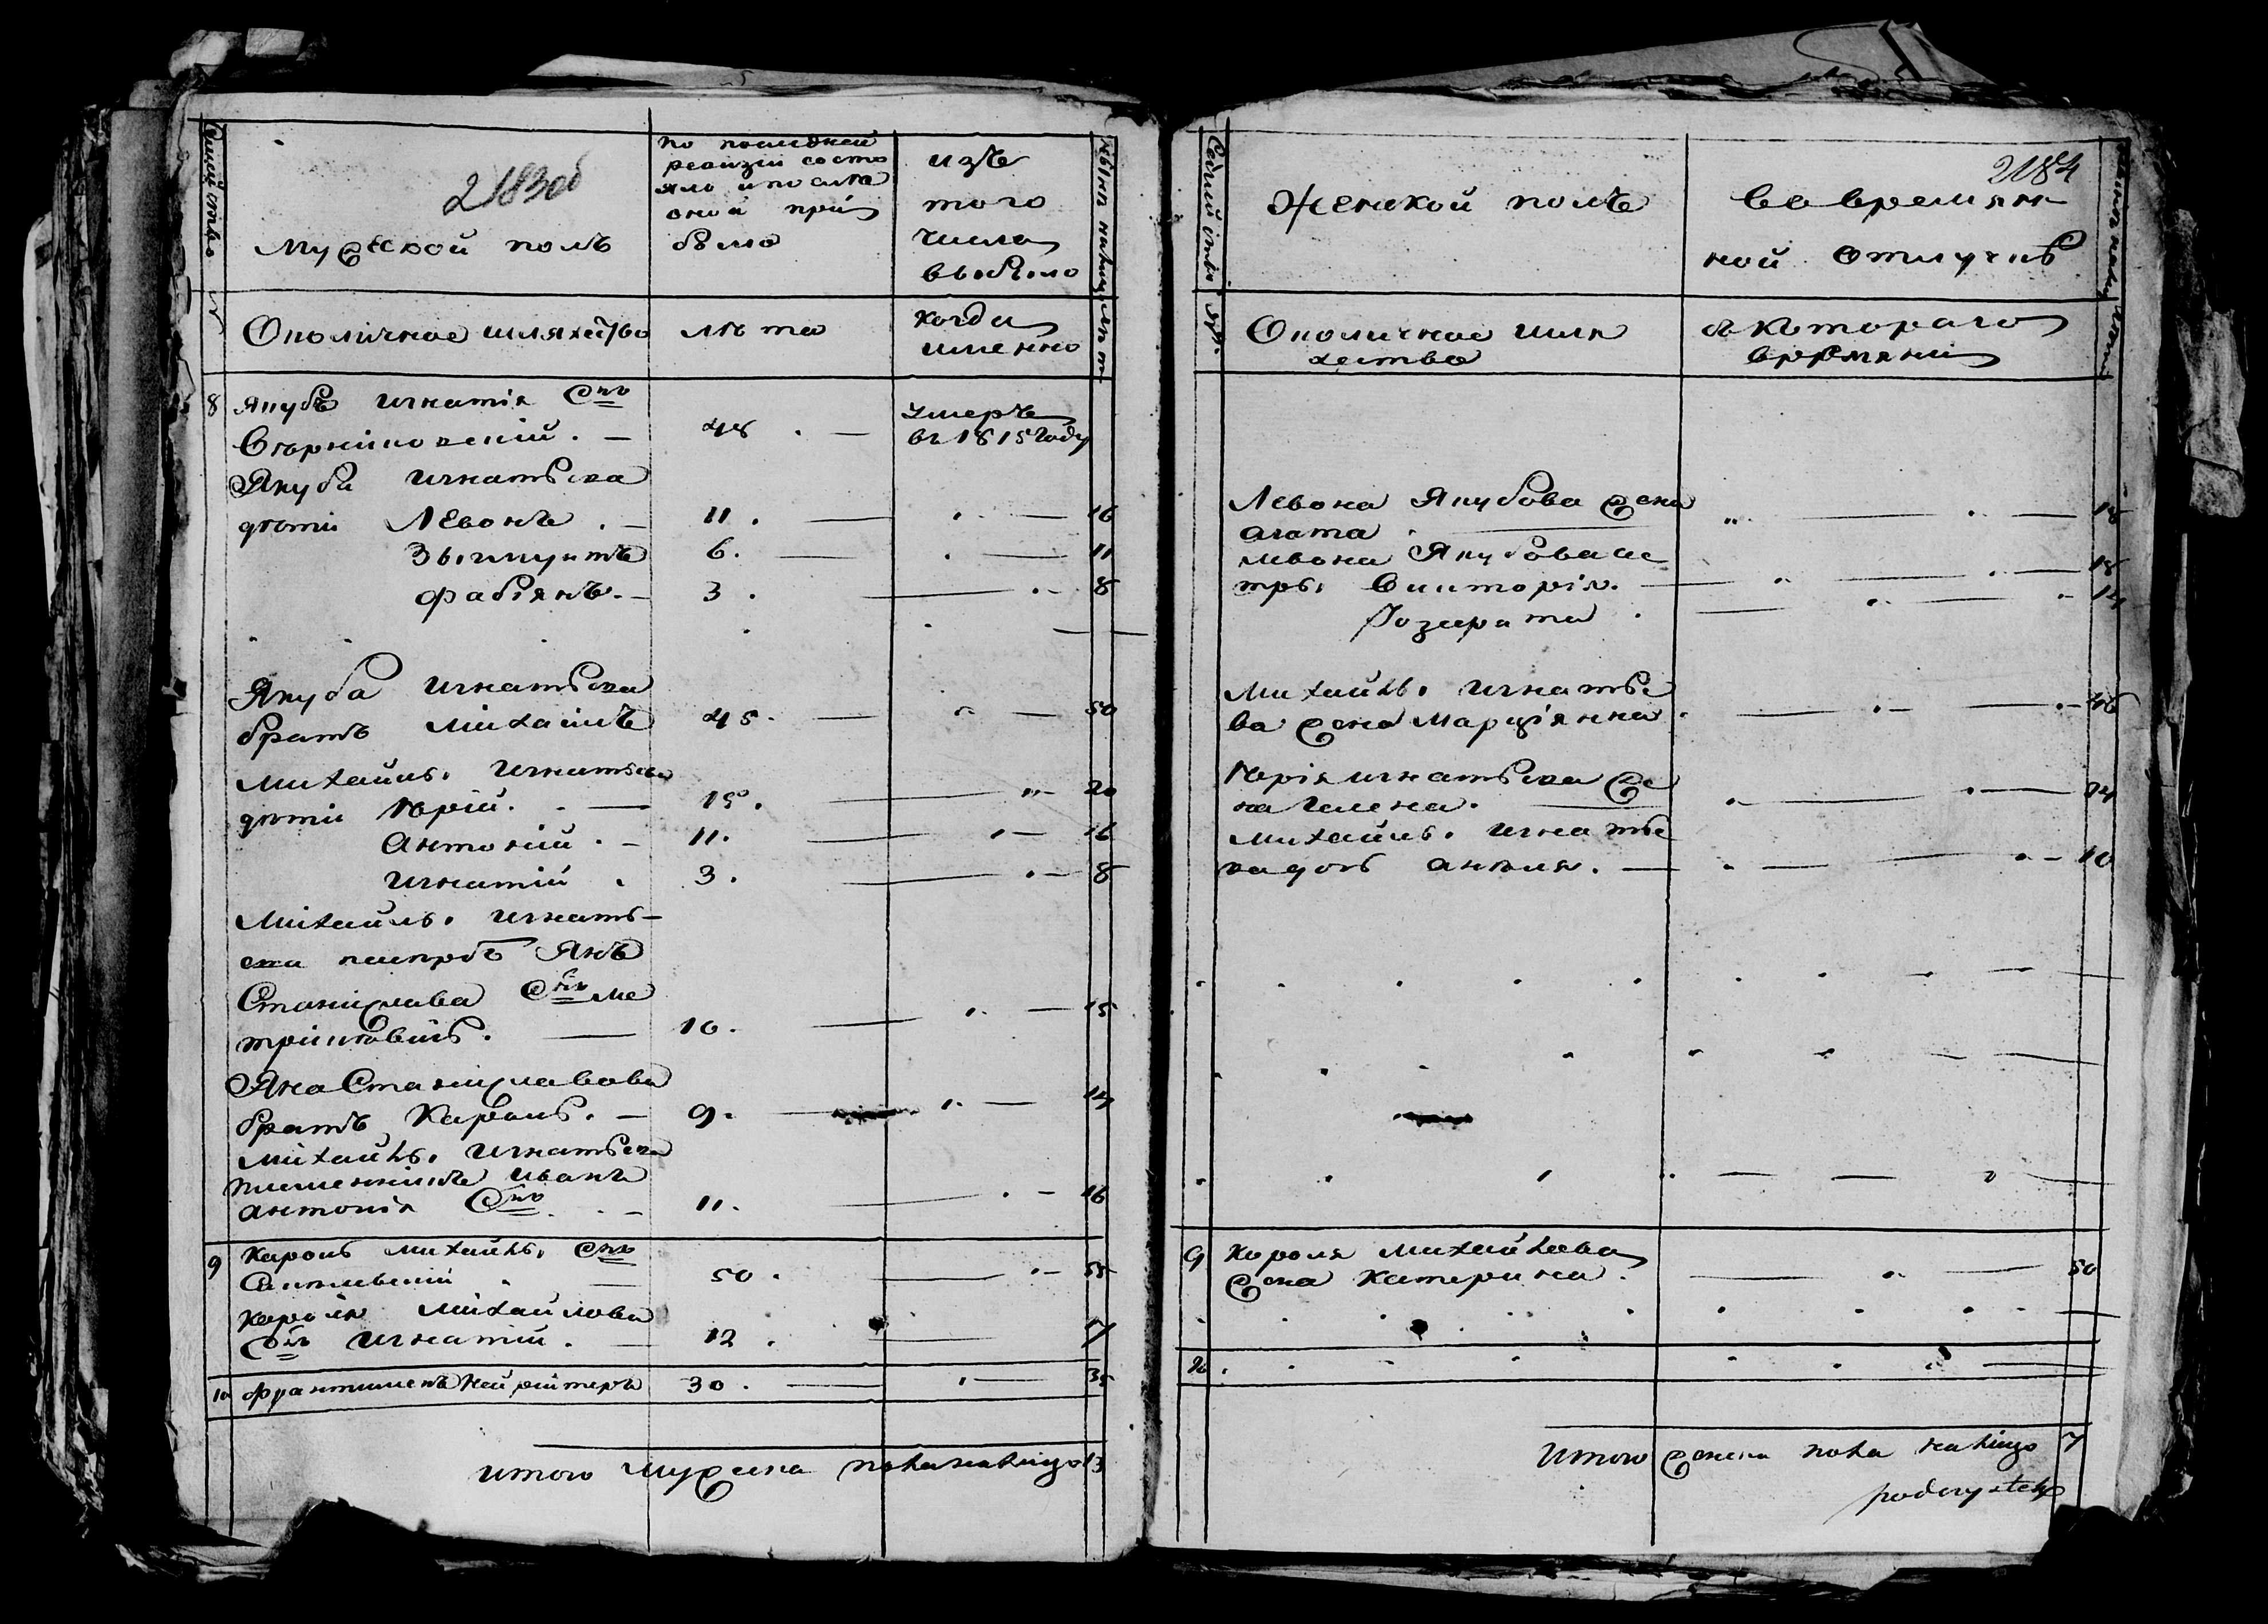 2183об
мужеской полъ
по последней
ревизіи состо
яло и после
оной при
было
изъ
того
числа
выбыло
Околичное шляхетство
лѣта
когда
именно
8 Якубъ игнатія Сынъ
48 . — умеръ
въ 1815 году
Якуба игнатьева
дѣти Левонъ . — 11 . — 16
Зыгмунтъ 6. — 11
фабіянъ. — 3 . — 8
Якуба игнатьева
братъ михаилъ 45. — 50
михайлы игнатьева
дѣти юрій. — 15 . — 20
антоній . — 11. — 16
игнатій . 3. — 8
михайлы игнать-
ева Янъ
Станислава Сынъ
10. — 15
Яна Станиславова
братъ Кароль. — 9. — 14
михайлы игнатьева
племенникъ иванъ
антонія Сынъ — 11. — 16
9 Кароль михайлы Сынъ
50 . — 55
Кароля михайлова
Сынъ игнатій . — 12 . — 17
10 30 . — 35
итого мужеска пола налицо 13
2184
Женской полъ
во времян
ной отлучкѣ
Околичное шля
хетство
съ Котораго
времяни
Левона Якубова жена
агата . — 18
левона Якубова сес
тры Викторія. — 18
14
михайлы игнатье
ва жена Марціянна . — 46
юрія игнатьева же
на Гелена. — 24
михайлы игнатье
ва дочь анеля. — 10
9 Кароля михайлова
жена Катерина . — 50
10
итого женска пола налицо 7